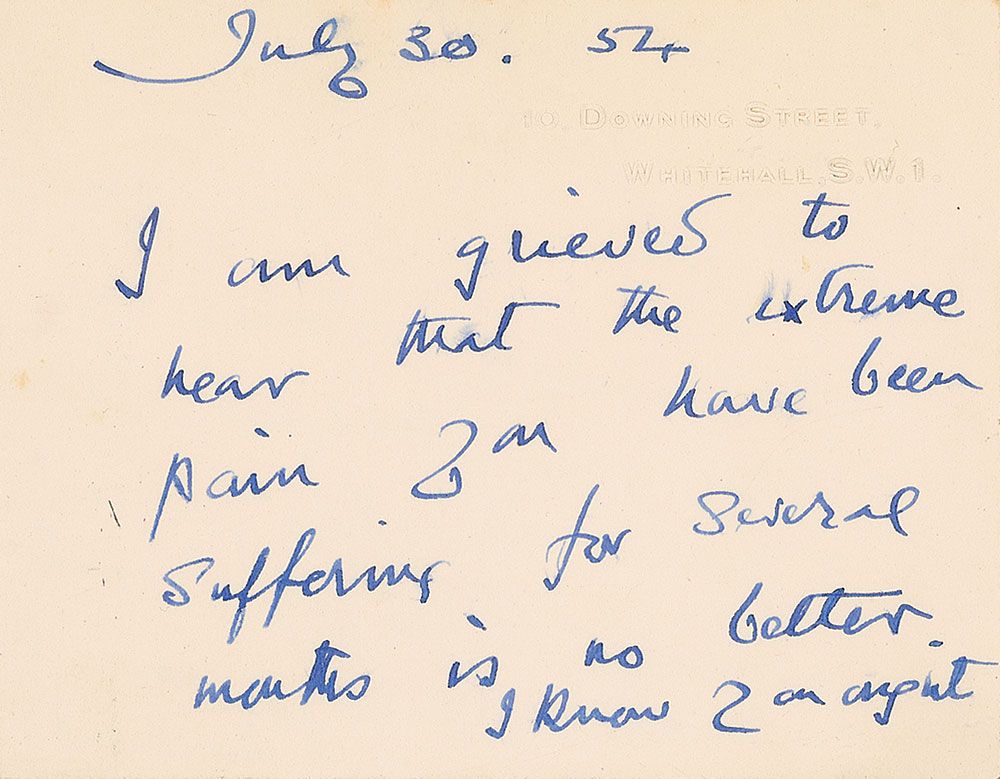 July 30. 54
10, DOWNING STREET,
WHITEHALL, S.W.1.
I am grieved to
hear that the extreme
pain you have been
suffering for several
months is no better.
I know you ought